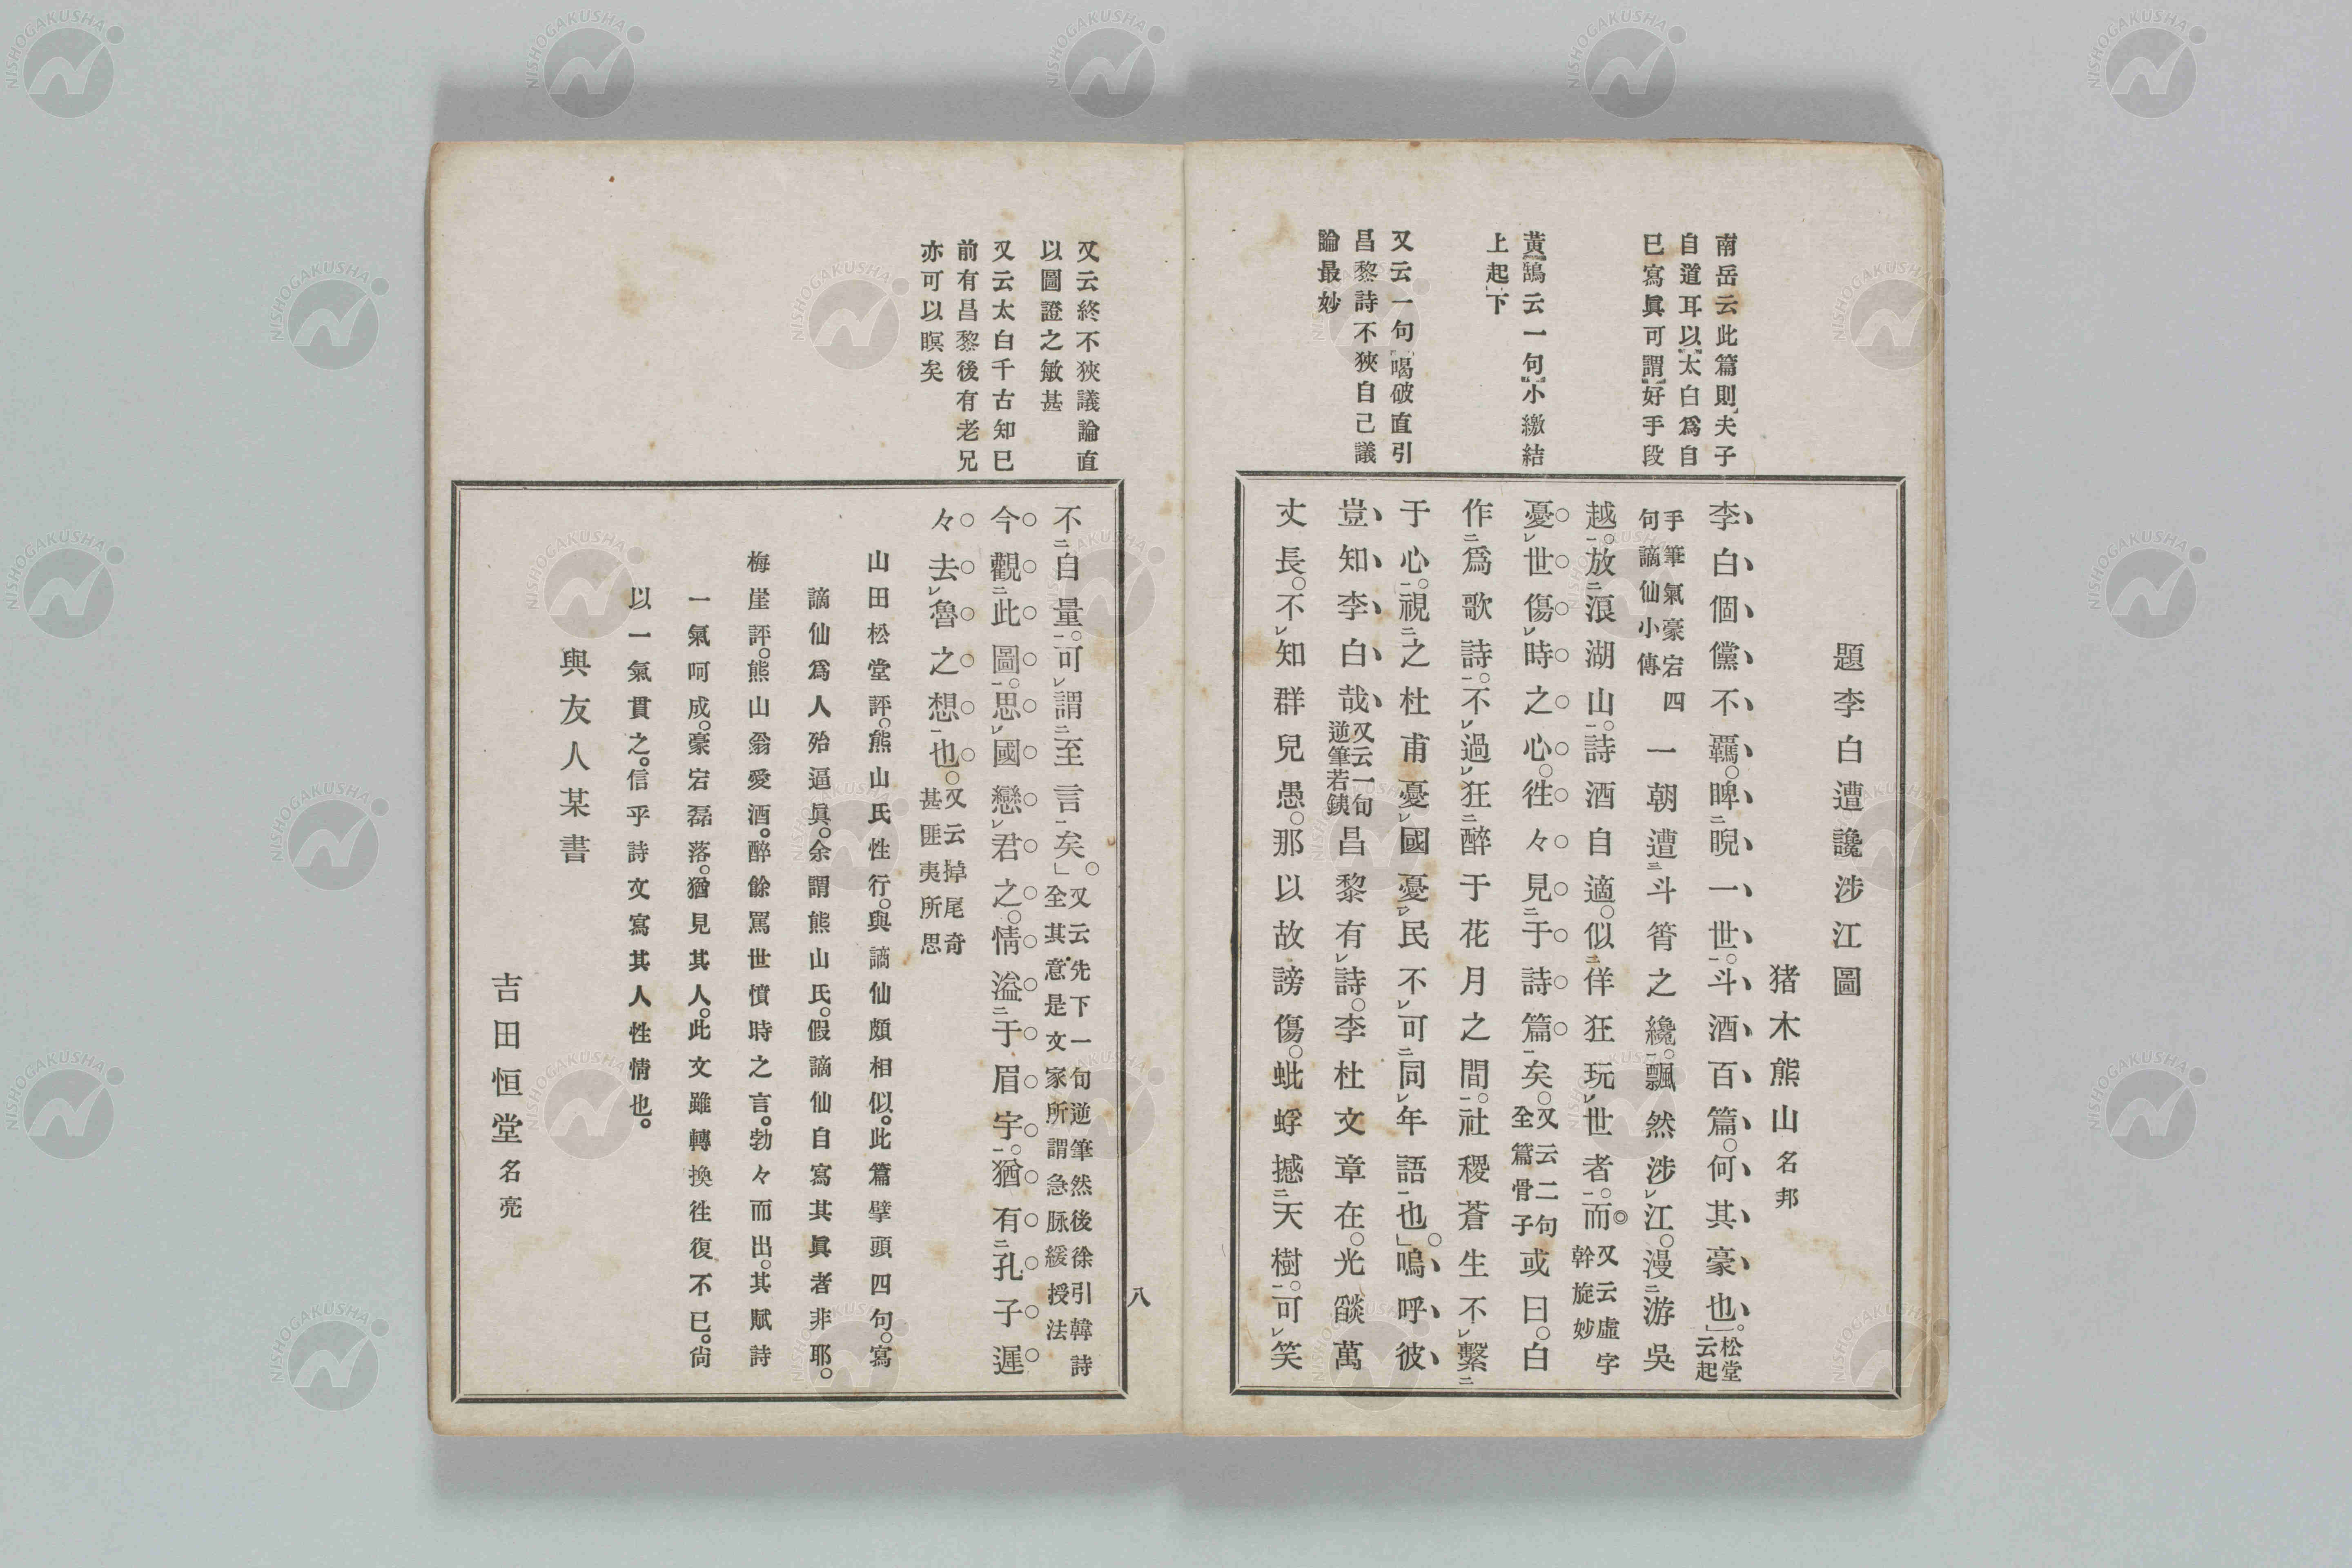 南岳云此篇則夫子
自道耳以太白爲自
已寫眞可謂好手段
黃鵠云一句小繳結
上起下
又云一句喝破直引
昌黎詩不狹自己議
論最妙
題李白遭讒涉江圖
猪木熊山名邦
李白個儻不羈。睥二睨一世一。斗酒百篇。何其豪也。」松堂云起
手筆氣豪宕四句謫仙小傳一朝遭三斗筲之纔一。飄然涉レ江。漫二游吳
越一。放二浪湖山一。詩酒自適。似二佯狂玩レ世者一。而又云虛字幹旋妙
憂レ世傷レ時之心。徃々見二于詩篇一矣。又云二句全篇骨子或曰。白
作二爲歌詩一。不レ過レ狂二醉于花月之間一。社稷蒼生不レ繫二
于心一。視二之杜甫憂レ國憂レ民不レ可二同レ年語一也。」嗚呼彼
豈知李白哉又云一句逆筆若銕昌黎有レ詩。李杜文章在。光燄萬
丈長。不レ知群兒愚。那以故謗傷。蚍蜉撼二天樹一。可レ笑
又云終不狹議論直
以圖證之敏甚
又云太白千古知巳
前有昌黎後有老兄
亦可以瞑矣
不二自量一。可レ謂二至言一矣。」又云先下一句逆筆然後徐引韓詩全其意是文家所謂急脉緩授法
今觀二此圖一。思レ國戀レ君之。情溢二于眉宇一。猶有二孔子遲
々去レ魯之想一也。又云掉尾奇甚匪夷所思
山田松堂評。熊山氏性行。與謫仙頗相似。此篇擘頭四句。寫
謫仙爲人殆逼眞。余謂熊山氏。假謫仙自寫其眞者非耶。
梅崖評。熊山翁愛酒。醉餘罵世憤時之言。勃々而出。其賦詩
一氣呵成。豪宕磊落。猶見其人。此文雖轉換徃復不已。尙
以一氣貫之。信乎詩文寫其人性情也。
與友人某書
吉田恒堂名亮
八